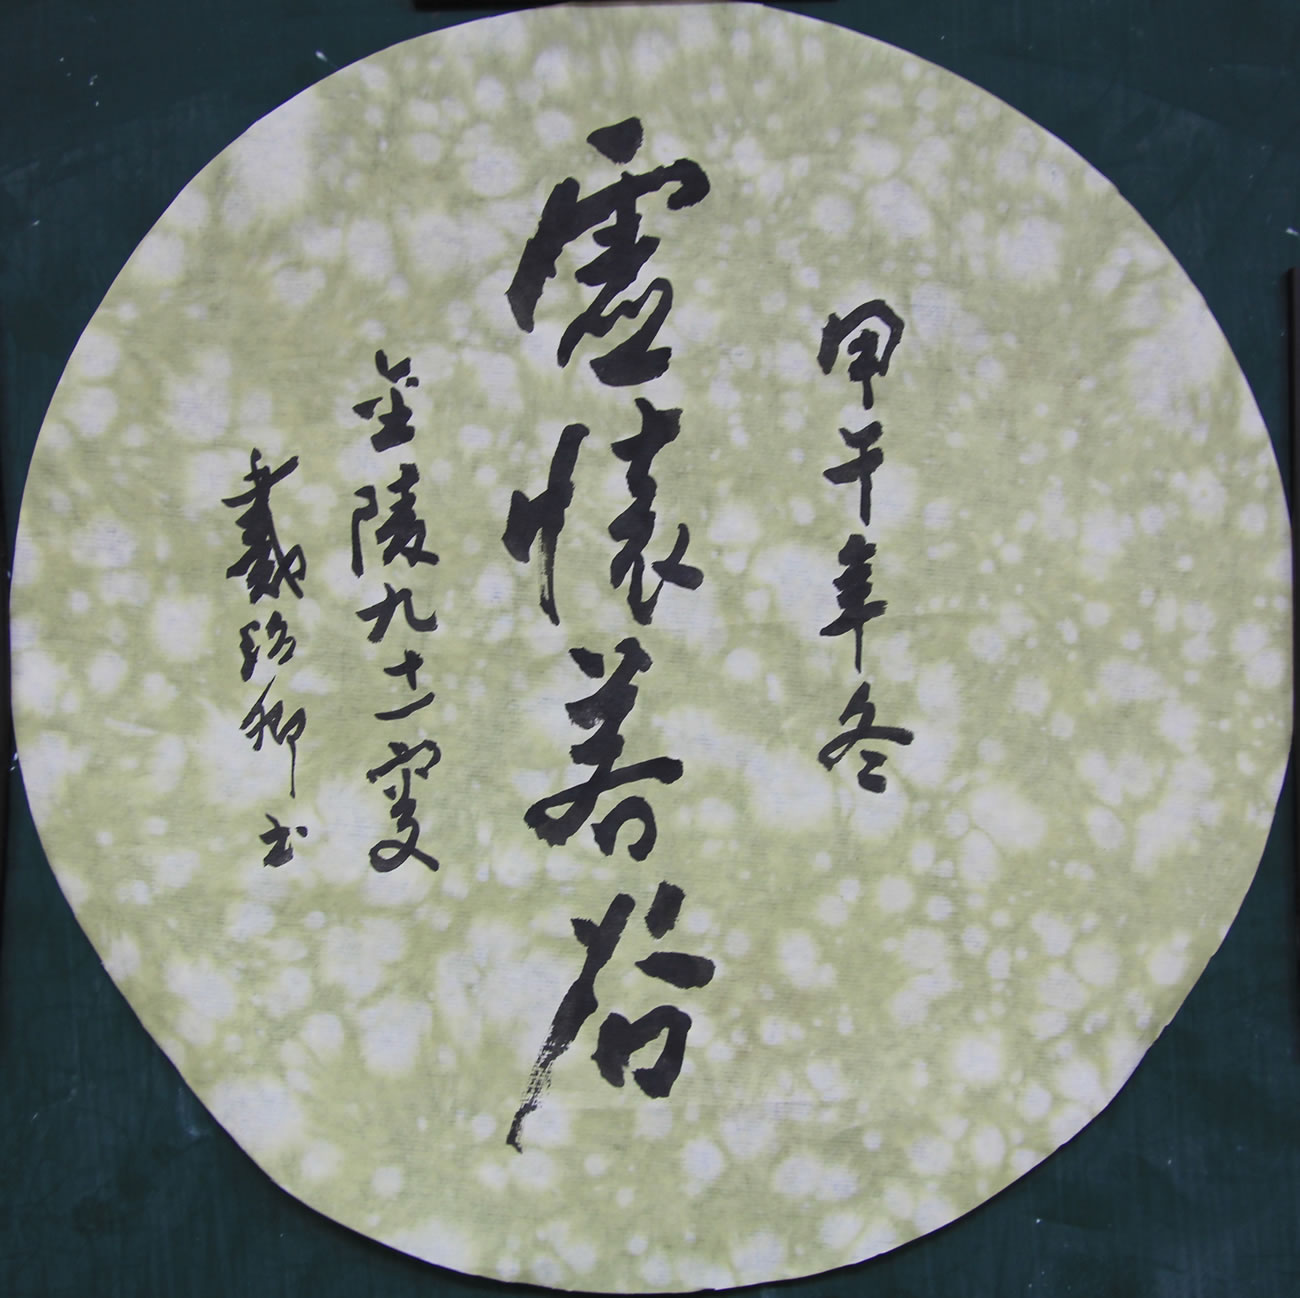 甲午年冬
虛懷若谷
金陵九十一叟
戴 卿书